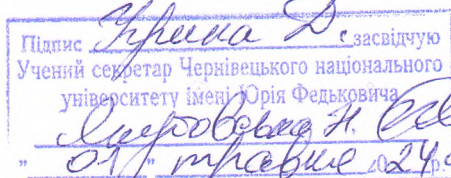 Підпис Крика Д. засвідчую
Учений секретар Чернівецького національного
університету імені Юрія Федьковича
Н.
" 01 " травня 2024 р.